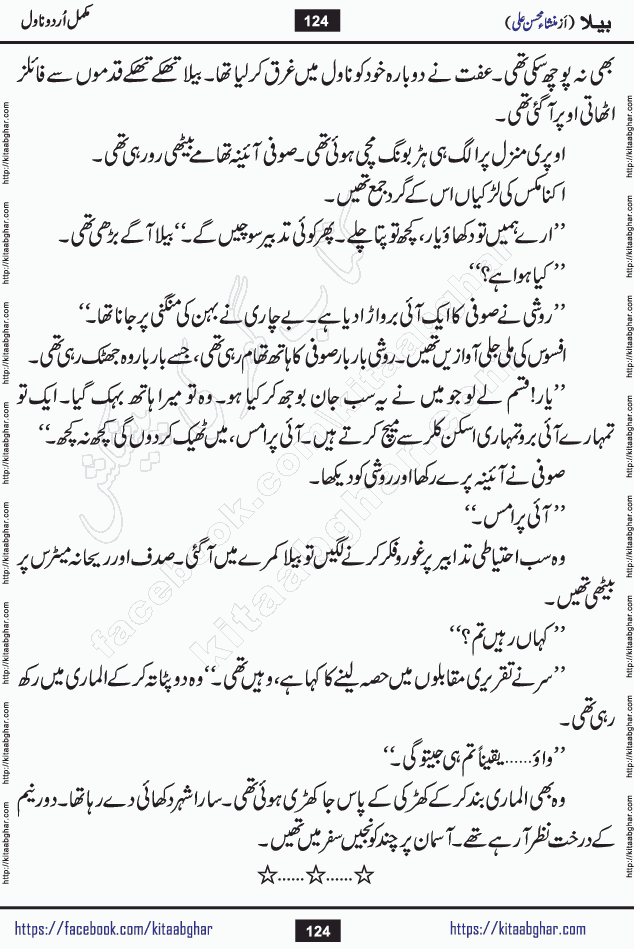 بیلا (از منشاء محسن علی) 124 مکمل اُردو ناول
بھی نہ پوچھ سکی تھی۔ عفت نے دوبارہ خود کو ناول میں غرق کر لیا تھا۔ بیلا تھکے تھکے قدموں سے فائلز
اٹھاتی اوپر آ گئی تھی۔
اوپری منزل پر الگ ہی ہڑبونگ مچی ہوئی تھی۔ صوفی آئینہ تھامے بیٹھی رو رہی تھی۔
اکنامکس کی لڑکیاں اس کے گرد جمع تھیں۔
’’ارے ہمیں تو دکھاؤ یار، کچھ تو پتا چلے۔ پھر کوئی تدبیر سوچیں گے۔‘‘ بیلا آگے بڑھی تھی۔
’’کیا ہوا ہے؟‘‘
’’روشی نے صوفی کا ایک آئی برو اڑا دیا ہے۔ بے چاری نے بہن کی منگنی پر جانا تھا۔‘‘
افسوس کی ملی جلی آوازیں تھیں۔ روشی بار بار صوفی کا ہاتھ تھام رہی تھی، جسے بار بار وہ جھٹک رہی تھی۔
’’یار! قسم لے لو جو میں نے یہ سب جان بوجھ کر کیا ہو۔ وہ تو میرا ہاتھ بہک گیا۔ ایک تو
تمہارے آئی برو تمہاری اسکن کلر سے میچ کرتے ہیں۔ آئی پرامس، میں ٹھیک کر دوں گی کچھ نہ کچھ۔‘‘
صوفی نے آئینہ پرے رکھا اور روشی کو دیکھا۔
’’آئی پرامس۔‘‘
وہ سب احتیاطی تدابیر پر غور و فکر کرنے لگیں تو بیلا کمرے میں آ گئی۔ صدف اور ریحانہ میٹرس پر
بیٹھی تھیں۔
’’کہاں رہیں تم؟‘‘
’’سر نے تقریری مقابلوں میں حصہ لینے کا کہا ہے، وہیں تھی۔‘‘ وہ دوپٹا تہ کر کے الماری میں رکھ
رہی تھی۔
’’واؤ...... یقیناً تم ہی جیتو گی۔‘‘
وہ بھی الماری بند کر کے کھڑکی کے پاس جا کھڑی ہوئی تھی۔ سارا شہر دکھائی دے رہا تھا۔ دور نیم
کے درخت نظر آ رہے تھے۔ آسمان پر چند کونجیں سفر میں تھیں۔
☆......☆......☆
https://facebook.com/kitaabghar 124 http://kitaabghar.com
http://kitaabghar.com
کتاب گھر کی پیشکش
facebook.com/kitaabghar
kitaabghar.com